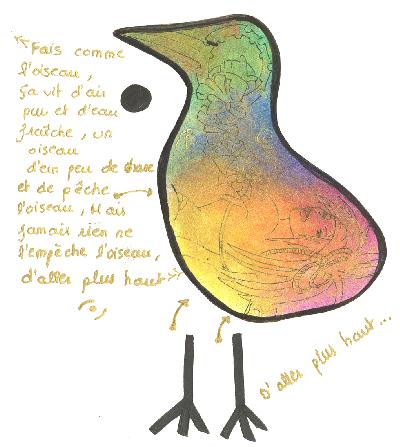 Fais comme
l'oiseau,
ça vit d'air
pur et d'eau
fraîche, un
oiseau
d'un peu de chasse
et de pêche
l'oiseau, Mais
jamais rien ne
l'empêche l'oiseau,
d'aller plus haut
D'aller plus haut...